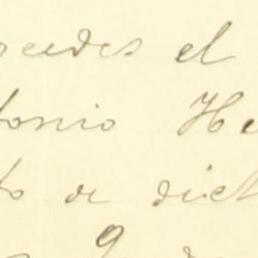 cedes el
tonio He
to de dict
9 de